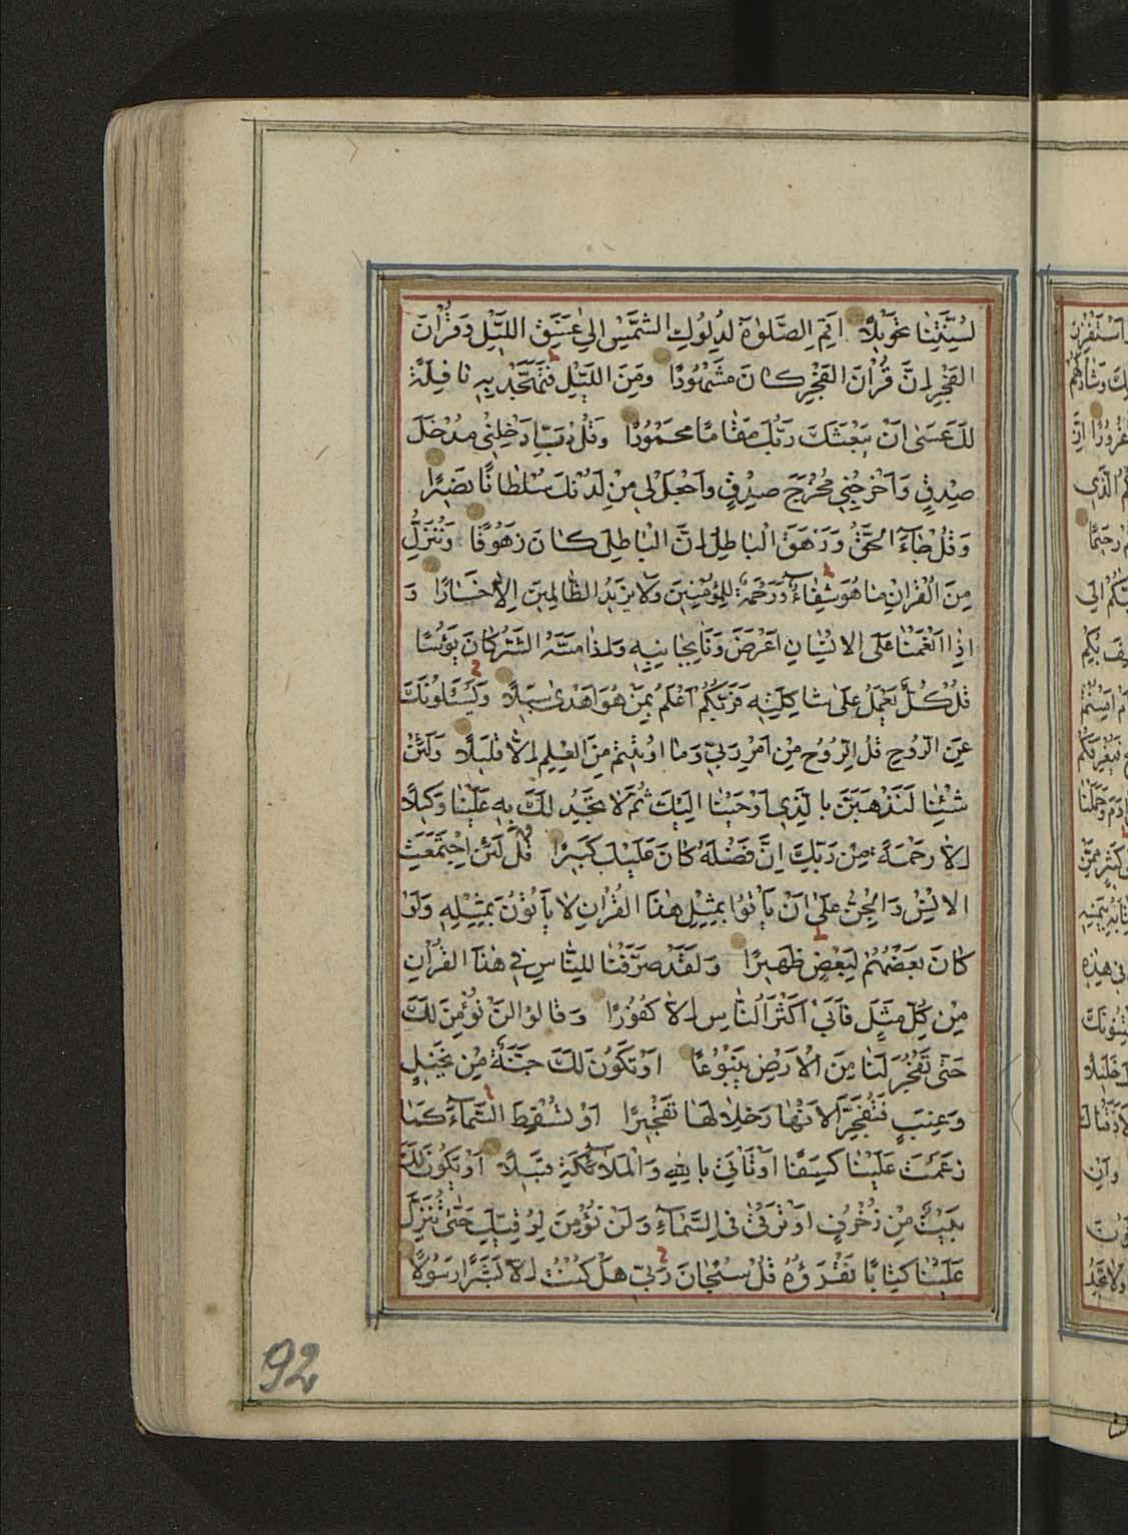 لِسُنَّتِنَا تَحْوِيلًا اَقِمِ الصَّلٰوةَ لِدُلُوكِ الشَّمْسِ اِلٰى غَسَقِ اللَّيْلِ وَقُرْاٰنَ
الْفَجْرِ اِنَّ قُرْاٰنَ الْفَجْرِ كَانَ مَشْهُودًا وَمِنَ اللَّيْلِ فَتَهَجَّدْ بِهِ نَافِلَةً
لَكَ عَسٰى اَنْ يَبْعَثَكَ رَبُّكَ مَقَامًا مَحْمُودًا وَقُلْ رَبِّ اَدْخِلْنِى مُدْخَلَ
صِدْقٍ وَاَخْرِجْنِى مُخْرَجَ صِدْقٍ وَاجْعَلْ لِى مِنْ لَدُنْكَ سُلْطَانًا نَصِيرًا
وَقُلْ جَاءَ الْحَقُّ وَزَهَقَ الْبَاطِلُ اِنَّ الْبَاطِلَ كَانَ زَهُوقًا وَنُنَزِّلُ
مِنَ الْقُرْاٰنِ مَا هُوَ شِفَاءٌ وَرَحْمَةٌ لِلْمُؤْمِنِينَ وَلَا يَزِيدُ الظَّالِمِينَ اِلَّا خَسَارًا وَ
اِذَا اَنْعَمْنَا عَلَى الْاِنْسَانِ اَعْرَضَ وَنَاٰ بِجَانِبِهِ وَاِذَا مَسَّهُ الشَّرُّ كَانَ يَؤُسًا
قُلْ كُلٌّ يَعْمَلُ عَلٰى شَاكِلَتِهِ فَرَبُّكُمْ اَعْلَمُ بِمَنْ هُوَ اَهْدٰى سَبِيلًا وَيَسْـَٔلُونَكَ
عَنِ الرُّوحِ قُلِ الرُّوحُ مِنْ اَمْرِ رَبِّى وَمَا اُوتِيتُمْ مِنَ الْعِلْمِ اِلَّا قَلِيلًا وَلَئِنْ
شِئْنَا لَنَذْهَبَنَّ بِالَّذِى اَوْحَيْنَا اِلَيْكَ ثُمَّ لَا تَجِدُ لَكَ بِهِ عَلَيْنَا وَكِيلًا
اِلَّا رَحْمَةً مِنْ رَبِّكَ اِنَّ فَضْلَهُ كَانَ عَلَيْكَ كَبِيرًا قُلْ لَئِنِ اجْتَمَعَتِ
الْاِنْسُ وَالْجِنُّ عَلٰى اَنْ يَأْتُوا بِمِثْلِ هٰذَا الْقُرْاٰنِ لَا يَأْتُونَ بِمِثْلِهِ وَلَوْ
كَانَ بَعْضُهُمْ لِبَعْضٍ ظَهِيرًا وَلَقَدْ صَرَّفْنَا لِلنَّاسِ فِى هٰذَا الْقُرْاٰنِ
مِنْ كُلِّ مَثَلٍ فَاَبٰى اَكْثَرُ النَّاسِ اِلَّا كُفُورًا وَقَالُوا لَنْ نُؤْمِنَ لَكَ
حَتّٰى تَفْجُرَ لَنَا مِنَ الْاَرْضِ يَنْبُوعًا اَوْ تَكُونَ لَكَ جَنَّةٌ مِنْ نَخِيلٍ
وَعِنَبٍ فَتُفَجِّرَ الْاَنْهَارَ خِلَالَهَا تَفْجِيرًا اَوْ تُسْقِطَ السَّمَاءَ كَمَا
زَعَمْتَ عَلَيْنَا كِسَفًا اَوْ تَأْتِىَ بِاللّٰهِ وَالْمَلَائِكَةِ قَبِيلًا اَوْ يَكُونَ لَكَ
بَيْتٌ مِنْ زُخْرُفٍ اَوْ تَرْقٰى فِى السَّمَاءِ وَلَنْ نُؤْمِنَ لِرُقِيِّكَ حَتّٰى تُنَزِّلَ
عَلَيْنَا كِتَابًا نَقْرَؤُهُ قُلْ سُبْحَانَ رَبِّى هَلْ كُنْتُ اِلَّا بَشَرًا رَسُولًا
92